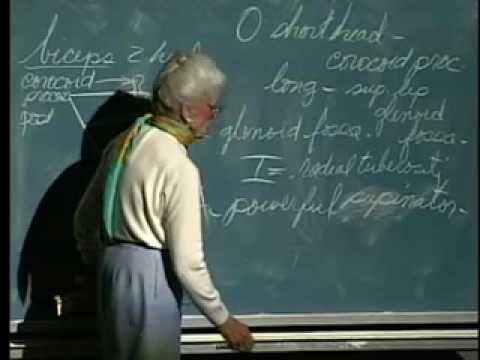 biceps 2 h
coracoid
process
O short head -
coracoid proc.
long - sup. lip
glenoid
glenoid fossa. fossa.
I = radial tuberosity
A - powerful supinator -